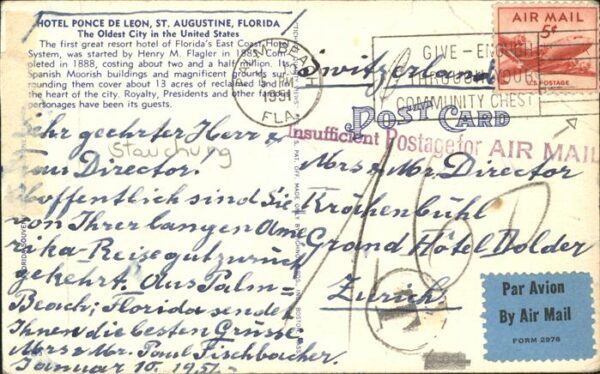 HOTEL PONCE DE LEON, ST. AUGUSTINE, FLORIDA
The Oldest City in the United States
The first great resort hotel of Florida's East Coast Hotel
System, was started by Henry M. Flagler in 1885. Com-
pleted in 1888, costing about two and a half million. Its
Spanish Moorish buildings and magnificent grounds sur-
rounding them cover about 13 acres of reclaimed land in
the heart of the city. Royalty, Presidents and other famous
personages have been its guests.
PALM BEACH
PM
1951
FLA.
GIVE – ENOUGH
THROUGH YOUR
COMMUNITY CHEST
AIR MAIL
5¢
U.S. POSTAGE
Switzerland
POST CARD
Insufficient Postage for AIR MAIL
Stauchung
Sehr geehrter Herr &
Frau Director!
Hoffentlich sind Sie
von Ihrer langen Ame-
rika-Reise gut zurück
gekehrt. Aus Palm-
Beach, Florida sendet
Ihnen die besten Grüsse
Mrs & Mr. Paul Fischbacher.
Januar 10. 1951.
Mrs & Mr. Director
Krähenbühl
Grand Hôtel Dolder
Zurich
T
Par Avion
By Air Mail
FORM 2978